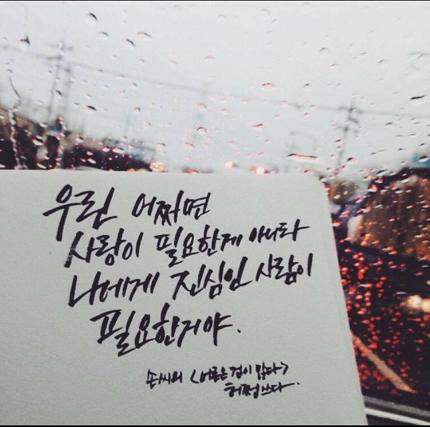 우린 어쩌면
사랑이 필요한게 아니라
나에게 진심인 사람이
필요한거야.
손씨의 <어른은 겁이 많다>
허쩡쓰다.